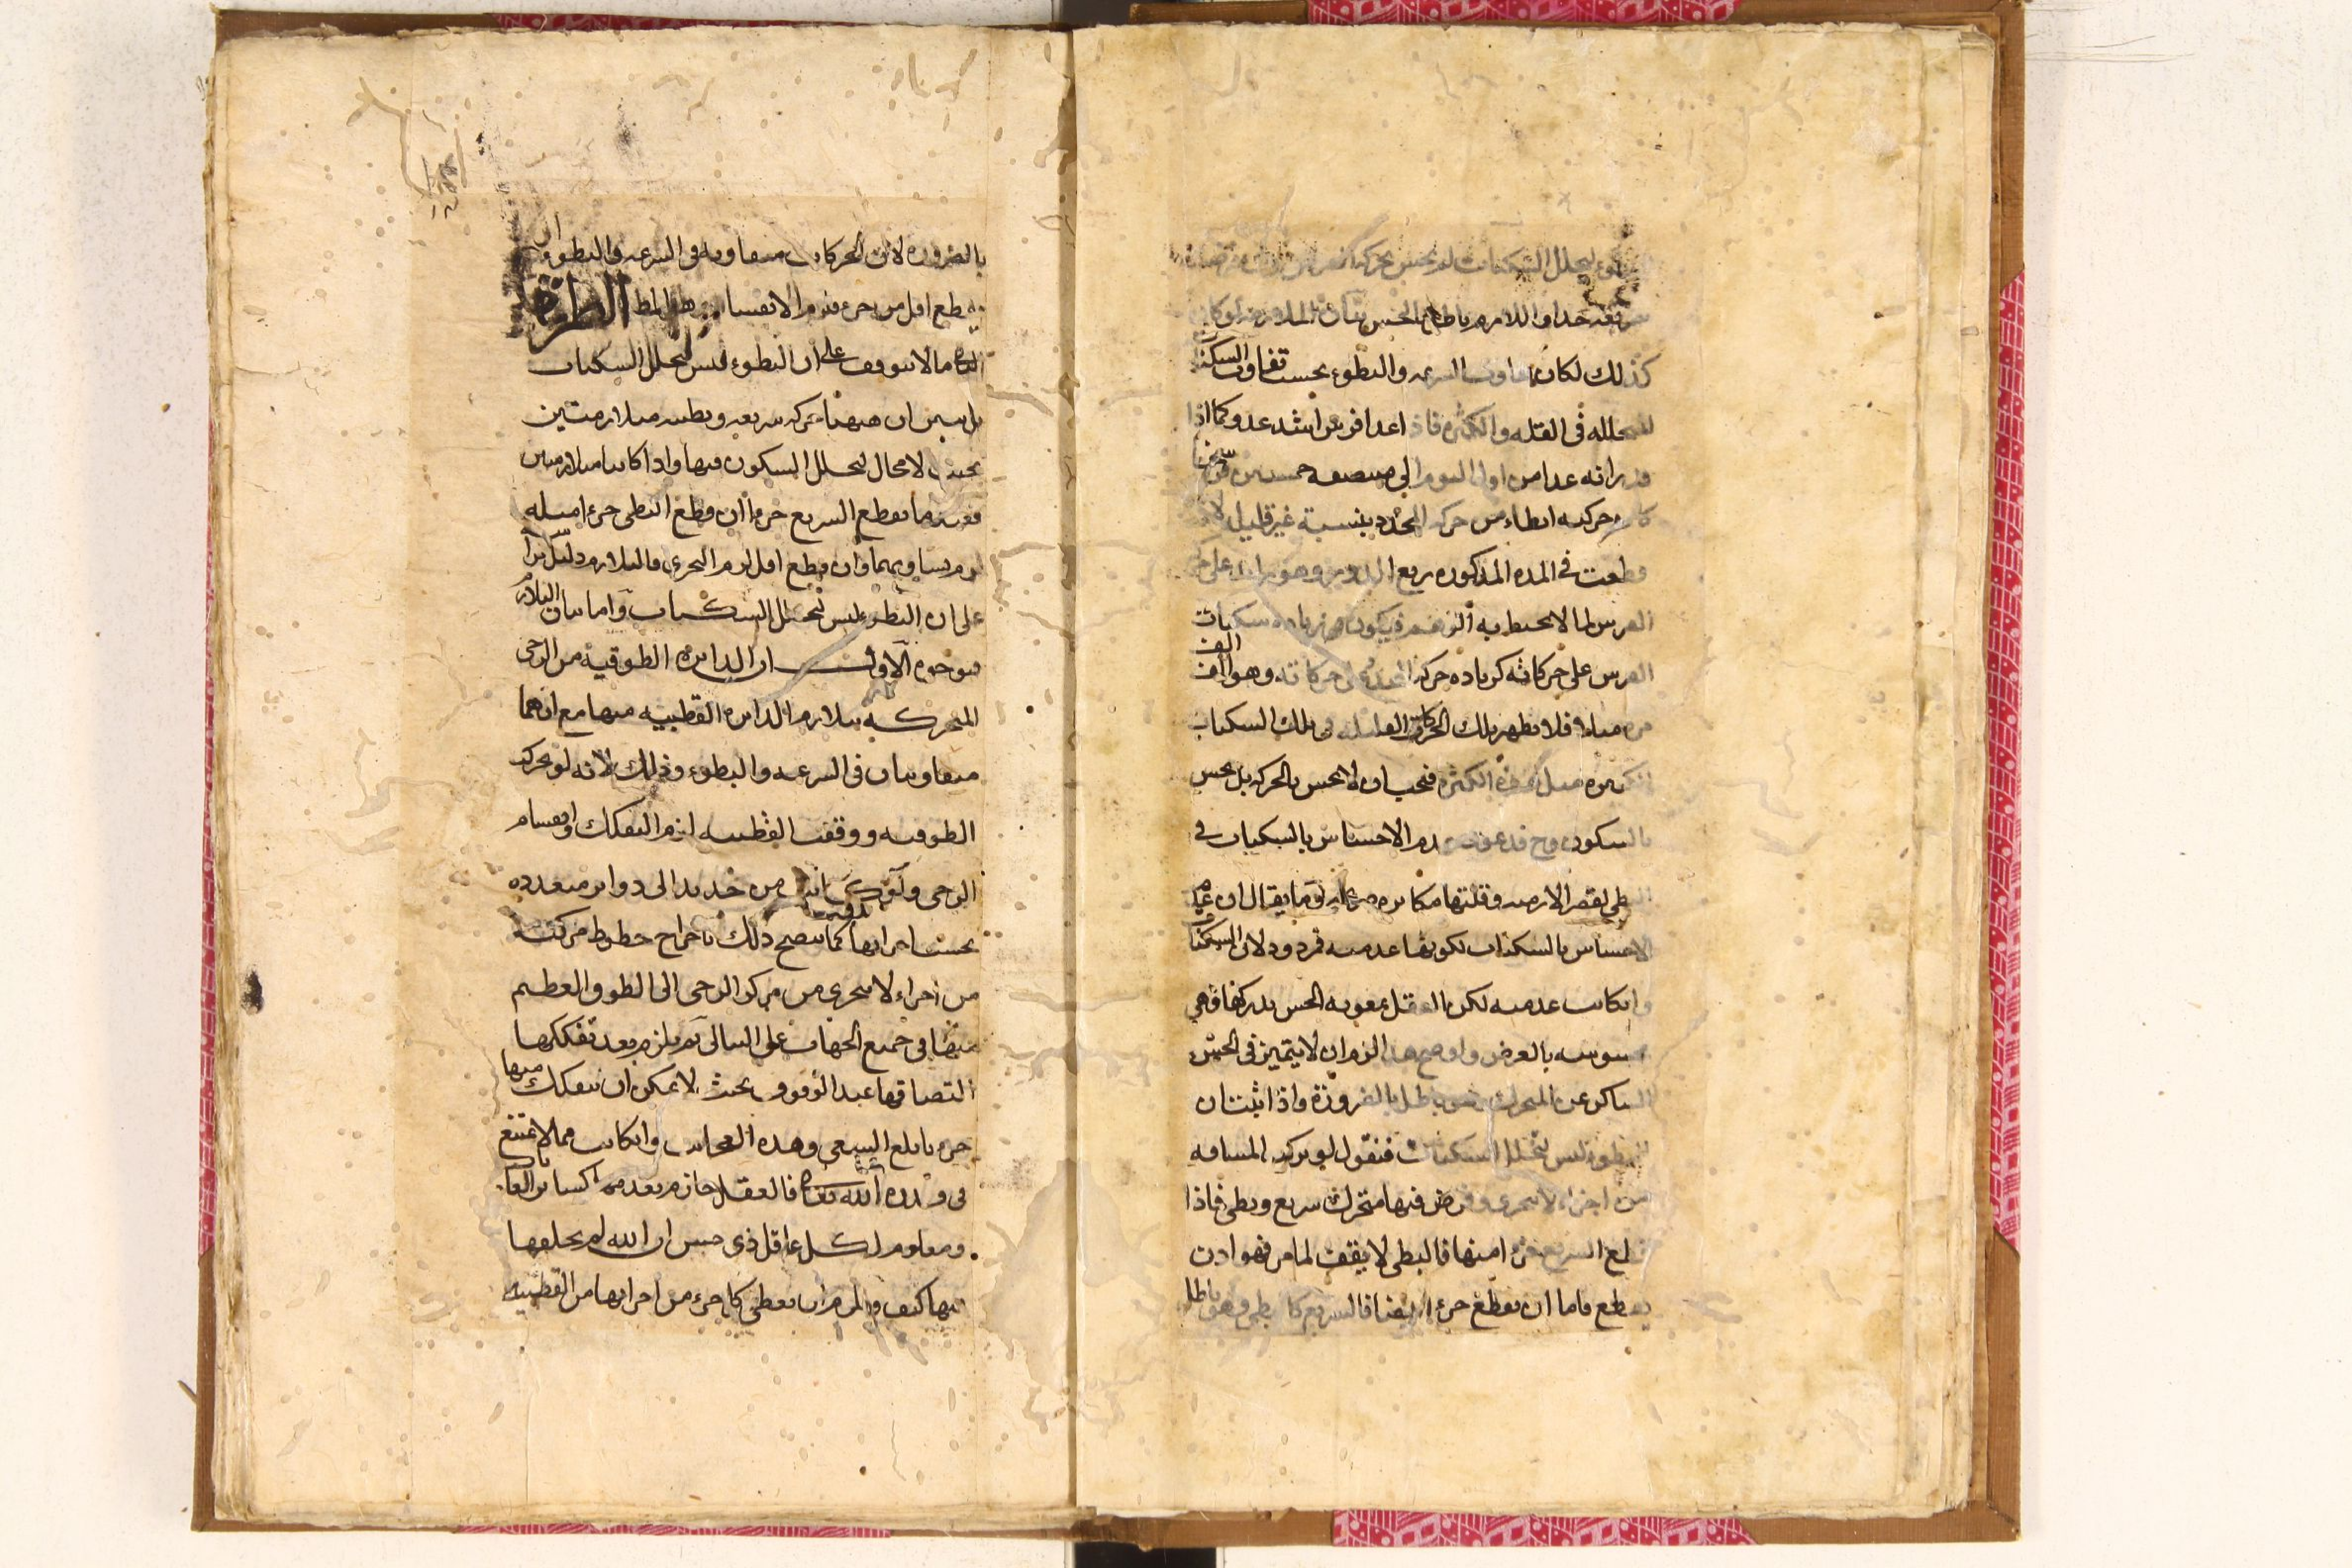 لتخلل السكنات لم يحس بحركة
جدا واللازم باطل بالحس بيان الملازمة لو كان
كذلك لكان تفاوت السرعة والبطوء بحسب تفاوت السكنات
المتخللة في القلة والكثرة فاذا عدا فرس اشد عدو كما اذا
قدر انه عدا من اول اليوم الى منتصفه خمسين فرسخا
كانت حركته ابطاء من حركة المحدد بنسبة غير قليل لانه
قطعت في المدة المذكورة ربع الدور وهو زايد على
الفرس لما لا يحيط به الوهم فيكون زيادة سكنات
الفرس على حركاته كزيادة حركة المحدد على حركاته وهو الف الف
مرة مثلا فلا يظهر تلك الحركات القليلة في تلك السكنات
الكثيرة مثل هذه الكثرة فيجب ان لا يحس بالحركة بل يحس
بالسكون وح عدم الاحساس بالسكنات في
البطي لقصر الازمنة وقلتها مكابرة وما يقال ان عدم
الاحساس بالسكنات لكونها عدمية فمردود لان السكنات
وان كانت عدمية لكن العقل بمعونة الحس يدركها فهي
محسوسة بالعرض ولو صح هذا لزم ان لا يتميز في الحس
الساكن عن المتحرك وهو باطل بالضرورة واذا ثبت ان
البطوء ليس لتخلل السكنات فنقول لو تركب المسافة
من اجزاء لا تتجزى وفرض فيها متحرك سريع وبطي فاذا
قطع السريع جزءا منها فالبطي لا يقف لما مر فهو اذن
يقطع فاما ان يقطع جزءا ايضا فالسريع كالبطي وهو باطل
بالضرورة لان الحركات متفاوتة في السرعة والبطوء او ان
يقطع اقل من جزء فيلزم الانقسام وهو المط الطريق
ما لا يتوقف على ان البطوء ليس لتخلل السكنات
بل يبين ان ههنا حركة سريعة وبطيئة متلازمتين
بحيث لا مجال لتخلل السكون فيها واذا كانتا متلازمتين
فعند ما يقطع السريع جزءا ان قطع البطي جزءا مثله
لزم تساويهما وان قطع اقل لزم التجزي فالتلازم دليل
على ان البطوء ليس لتخلل السكنات واما بيان التلازم
فبوجوه الاول ان الدايرة الطوقية من الرحى
المتحركة تلازم الدايرة القطبية منها مع انهما
متفاوتتان في السرعة والبطوء وذلك لانه لو تحرك
الطوقية ووقفت القطبية لزم التفكك وانقسام
الرحى ولو كانت من حديد الى دواير متعددة
بحسب اجزايها كما يتضح ذلك باخراج خطوط مركبة
من اجزاء لا تتجزى من مركز الرحى الى الطوق العظيم
منها في جميع الجهات على التوالي ثم يلزم بعد تفككها
التصاقها عند الوقوف بحيث لا يمكن ان يتفكك منها
جزء بابلغ السعي وهذه العجايب وان كانت مما لا يمتنع
في قدرة الله تعالى فالعقل جازم بعدمه كساير العا
ومعلوم لكل عاقل ذي حس ان الله لم يخلقها
فيها كيف ويلزم ان يعطي كل جزء من اجزايها من القطبية